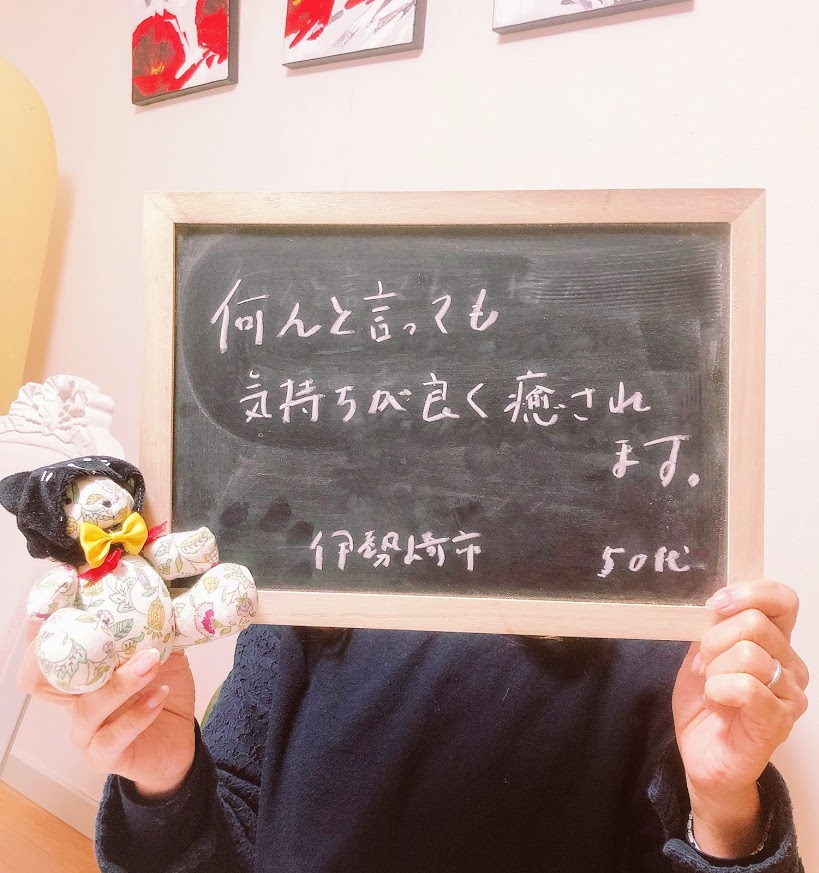 何んと言っても
気持ちが良く癒され
ます。
伊勢崎市 50代